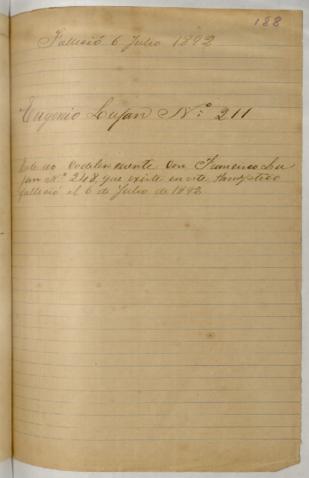 188
Falleció 6 Julio 1892
Eugenio Lujan Nº 211
Este es codelincuente con Francisco Lu
jan Nº 248, que existe en este
falleció el 6 de Julio de 1892